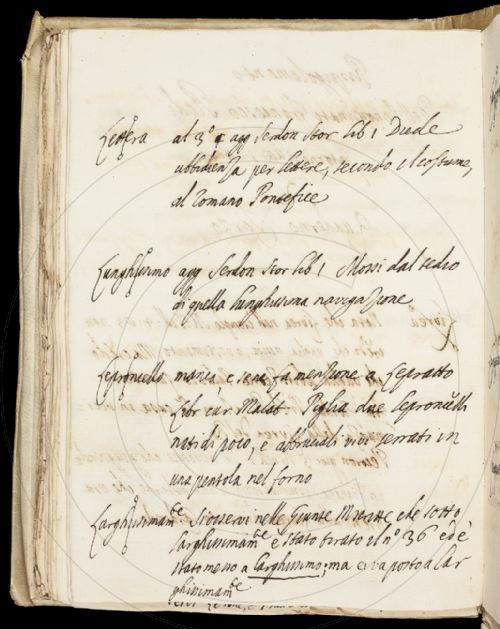 Lettera al 3° § agg Serdon Stor lib 1 Diede
ubbidienza per lettere, secondo il costume,
al Romano Pontefice
Lunghissimo agg Serdon Stor lib 1 Mossi dal tedio
di quella lunghissima navigazione
Leproncello manca e se ne fa menzione a Lepratto
Libr cur Malat. Piglia due leproncelli
nati di poco, e abbruciali vivi serrati in
una pentola nel forno
Larghissimam^te Si osservi nelle Giunte Mss, che sotto
larghissimam^te è stato tirato il n° 36 ed è
stato messo a larghissimo; ma ci va posto a lar
ghissimam^te